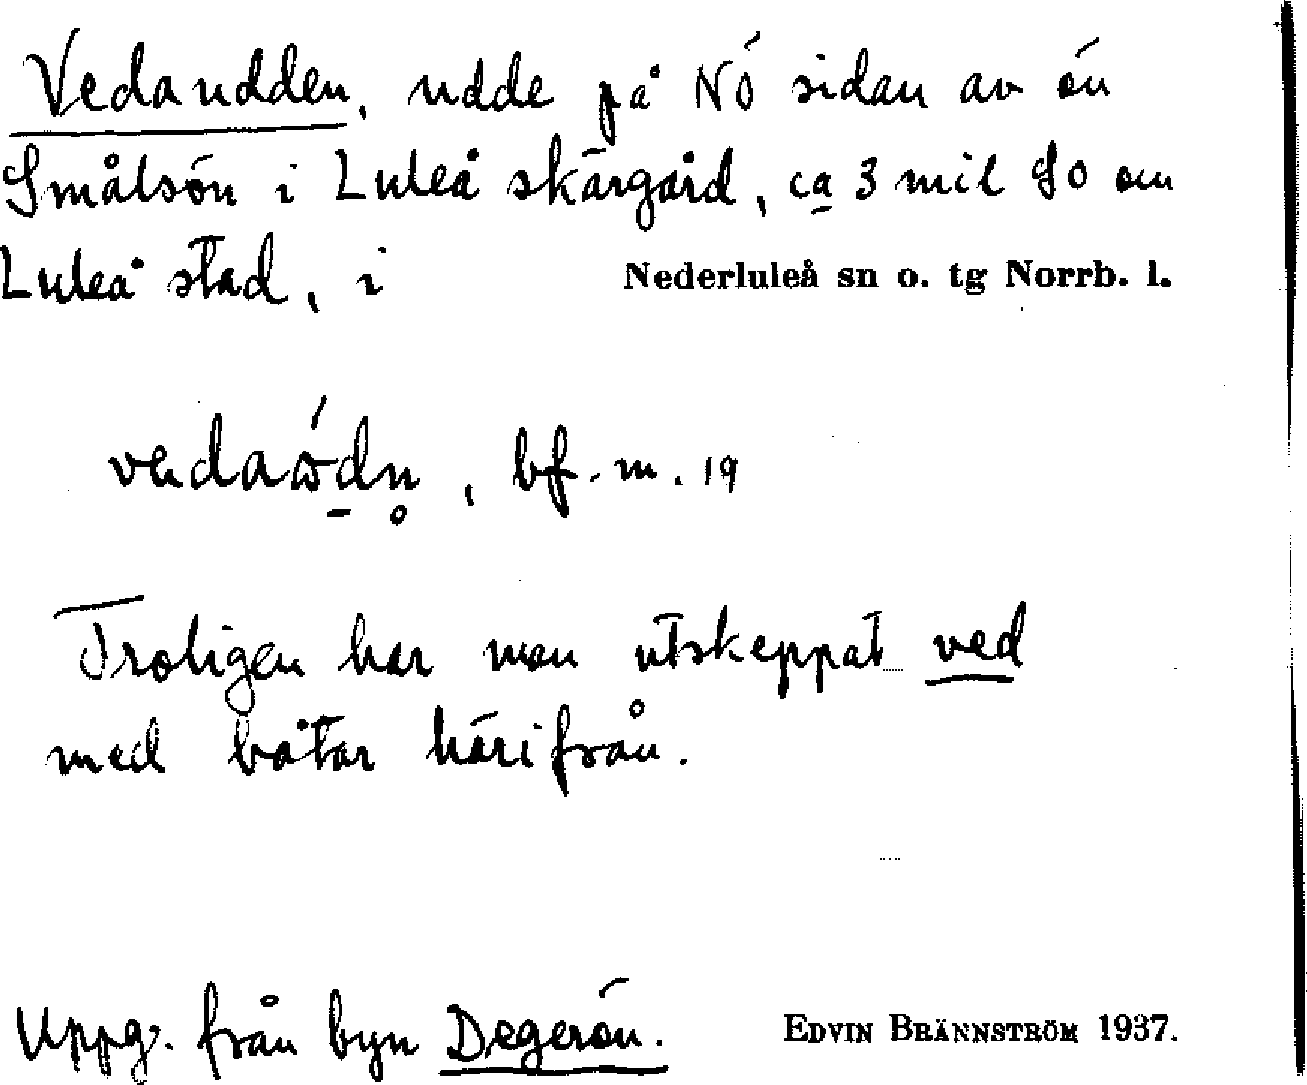 Vedaudden, udde på NÖ sidan av ön
Smålsön i Luleå skärgård, ca 3 mil SO om
Luleå stad, i Nederluleå sn o. tg Norrb. l.
bf. m. 19
Troligen har man utskeppat ved
med båtar härifrån.
Uppg. från byn Degerön. EDVIN BRÄNNSTRÖM 1937.